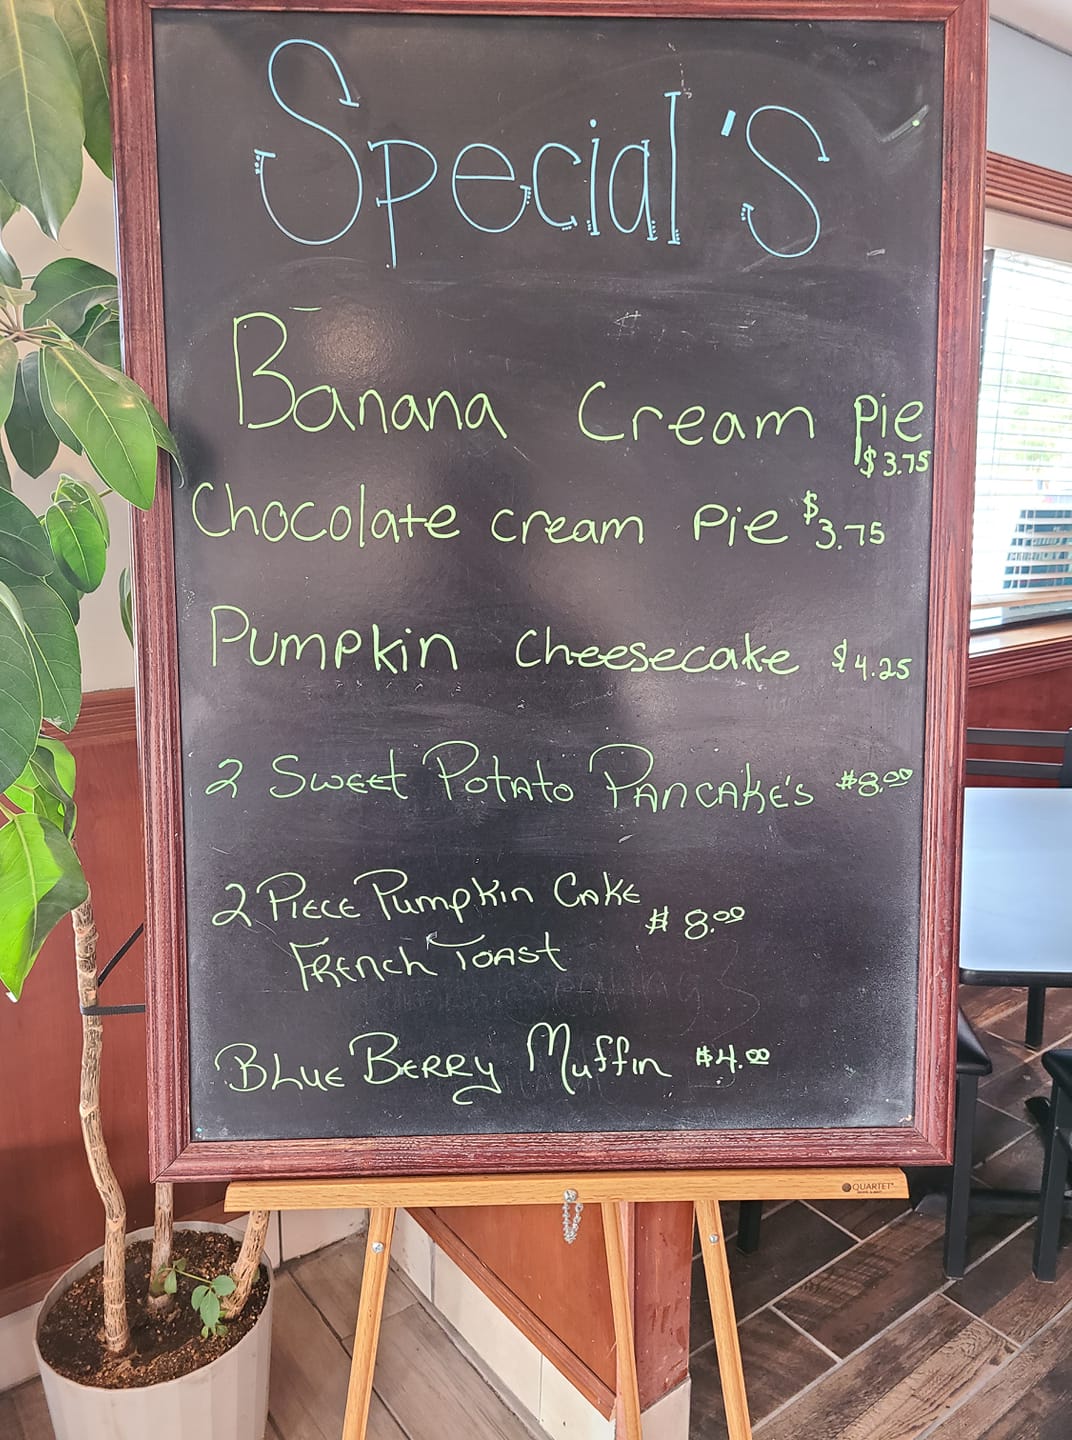 Special's
Banana Cream Pie
$3.75
Chocolate cream Pie $3.75
Pumpkin Cheesecake $4.25
2 Sweet Potato Pancake's $8.00
2 Piece Pumpkin Cake
$8.00
French Toast
Blue Berry Muffin $4.00
QUARTET